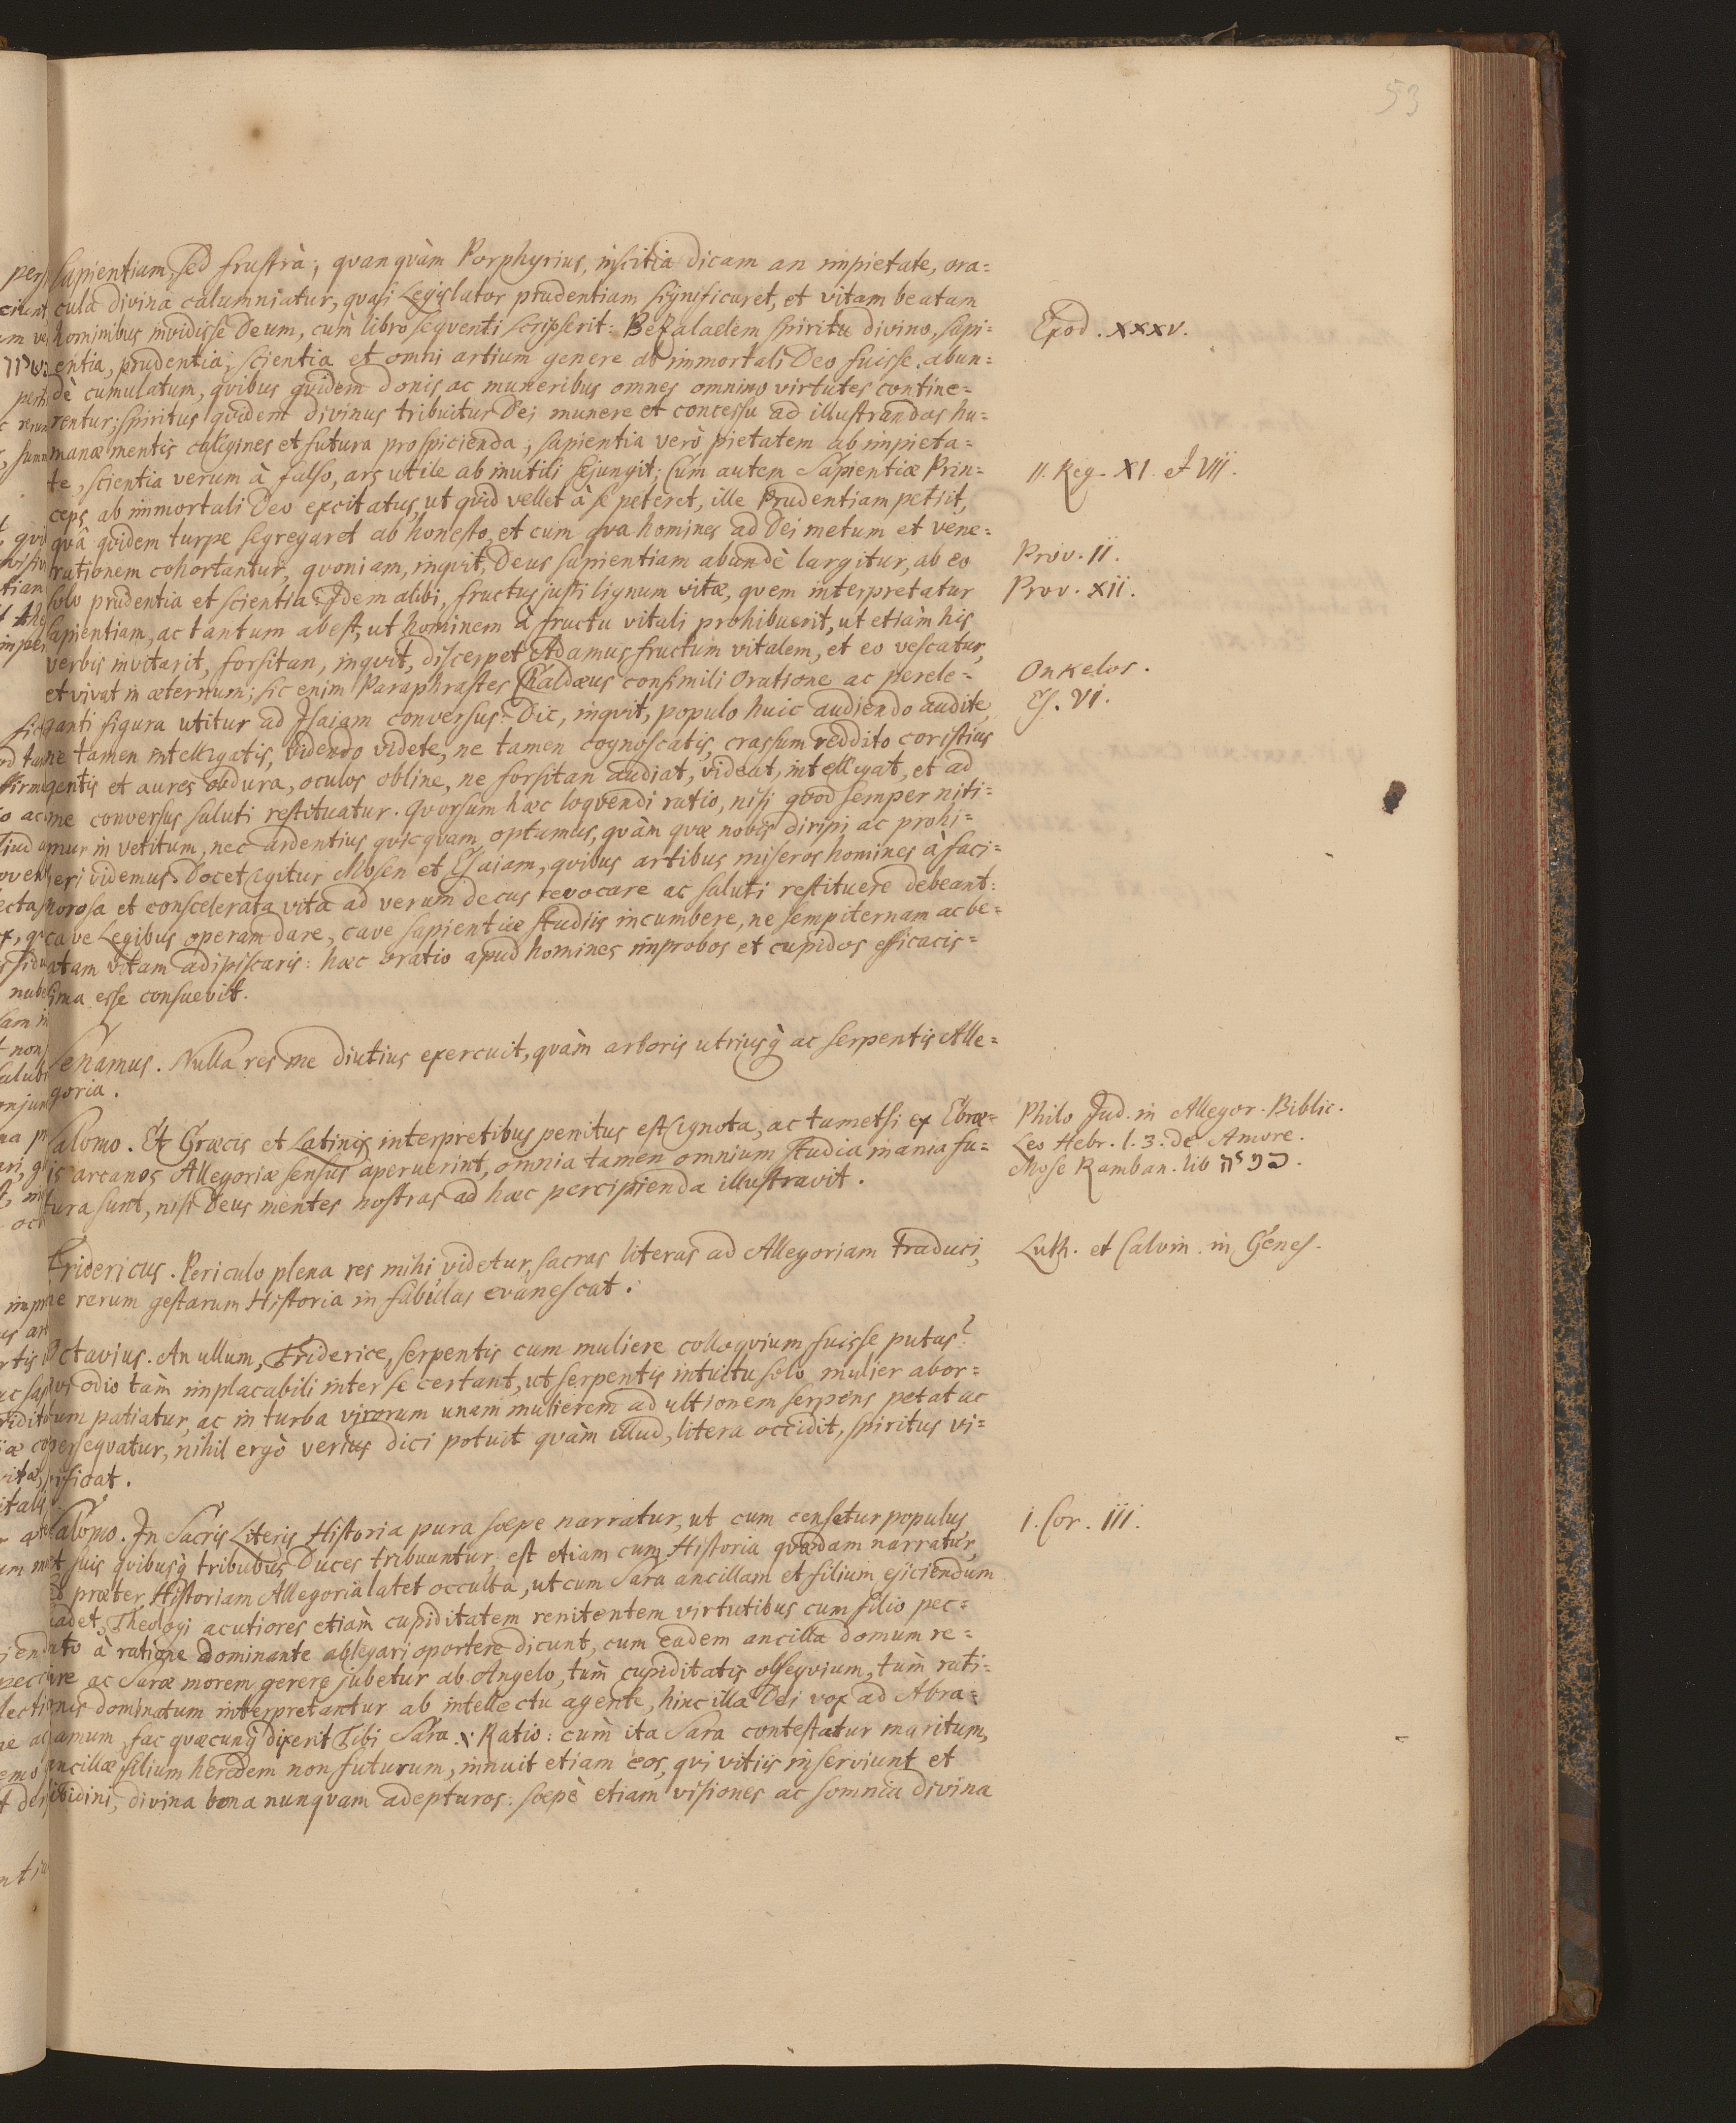 53
sapientiam, sed frustrà; quanqvàm Porphyrius, inscitia dicam an impietate, ora=
cula divina calumniatur, quasi Legislator prudentiam significaret, et vitam beatam
hominibus invidisse Deum, cùm libro seqventi scripserit: Bezalaelem spiritu divino, sapi=
Exod. XXXV.
entia, prudentia, scientia et omni artium genere ab immortali Deo fuisse abun=
dè cumulatum, qvibus qvidem donis ac muneribus omnes omnino virtutes contine=
rentur; spiritus qvidem divinus tribuitur Dei munere et concessu ad illustrandas hu=
manæ mentis caligines et futura prospicienda; sapientia verò pietatem ab impieta=
te, scientia verum à falso, ars utile ab inutili sejungit; Cùm autem Sapientiæ Prin=
II. Reg. XI. et VIII.
ceps ab immortali Deo excitatus, ut qvid vellet à se peteret, ille Prudentiam petiit,
qvâ qvidem turpe segregaret ab honesto, et cum qva homines ad Dei metum et vene=
rationem cohortantur, qvoniam, inqvit, Deus sapientiam abundè largitur, ab eo
Prov. II.
solo prudentia et scientia. Idem alibi, fructus justi lignum vitæ, qvem interpretatur
Prov. XII.
sapientiam, ac tantum abest, ut hominem à fructu vitali prohibuerit, ut etiàm his
verbis invitarit, forsitan, inqvit, discerpet Adamus fructum vitalem, et eo vescatur,
et vivat in æternum; sic enim Paraphrastes Chaldæus consimili Oratione ac perele=
Onkelos.
ganti figura utitur ad Isaiam conversus: Dic, inqvit, populo huic audiendo audite,
Es. VI.
ne tamen intelligatis, videndo videte, ne tamen cognoscatis, crassum reddito cor istius
gentis et aures obdura, oculos obline, ne forsitan audiat, videat, intelligat, et ad
me conversus saluti restituatur. Qvorsum hæc loqvendi ratio, nisi qvod semper niti=
mur in vetitum, nec ardentius qvicqvam optamus, qvàm qvæ nobis diripi ac prohi=
beri videmus. Docet igitur Mosen et Esaiam, qvibus artibus miseros homines à faci=
norosa et conscelerata vita ad verum decus revocare ac saluti restituere debeant:
cave Legibus operam dare, cave sapientiæ studiis incumbere, ne sempiternam ac be=
atam vitam adipiscaris: hæc oratio apud homines improbos et cupidos efficacis=
sima esse consuevit.
Senamus. Nulla res me diutius exercuit, qvàm arboris utriusq́ ac serpentis Alle=
goria.
Salomo. Et Græcis et Latinis interpretibus penitus est ignota, ac tametsi ex Ebræ=
Philo Jud. in Allegor. Biblic.
is arcanos Allegoriæ sensus aperuerint, omnia tamen omnium studia inania fu=
Leo Hebr. l. 3. de Amore.
Mose Ramban. lib
tura sunt, nisi Deus mentes nostras ad hæc percipienda illustravit.
Fridericus. Periculo plena res mihi videtur, sacras literas ad Allegoriam traduci,
Luth. et Calvin. in Genes.
ne rerum gestarum Historia in fabulas evanescat.
Octavius. An ullum, Friderice, serpentis cum muliere colloqvium fuisse putas?
qvi odio tàm implacabili inter se certant, ut serpentis intuitu solo mulier abor=
tum patiatur, ac in turba virorum unam mulierem ad ultionem serpens petat ac
perseqvatur, nihil ergò verius dici potuit qvàm illud, litera occidit, spiritus vi=
vificat.
Salomo. In Sacris Literis Historia pura sæpe narratur, ut cum censetur populus,
I. Cor. III.
et suis qvibusq́ tribubus Duces tribuuntur, est etiam cum Historia qvædam narratur,
et præter Historiam Allegoria latet occulta, ut cum Sara ancillam et filium ejiciendum
suadet, Theologi acutiores etiàm cupiditatem renitentem virtutibus cum filio pec=
cato à ratione dominante ablegari oportere dicunt, cum eadem ancilla domum re=
dire ac Saræ morem gerere jubetur ab Angelo, tùm cupiditatis obseqvium, tùm rati=
onis dominatum interpretantur ab intellectu agente, hinc illa Dei vox ad Abra=
amum, fac qvæcunq́ dixerit Tibi Sara .i. Ratio: cùm ita Sara contestatur maritum,
ancillæ filium heredem non futurum, innuit etiam eos, qvi vitiis inserviunt et
libidini, divina bona nunqvam adepturos: sæpè etiam visiones ac somnia divina